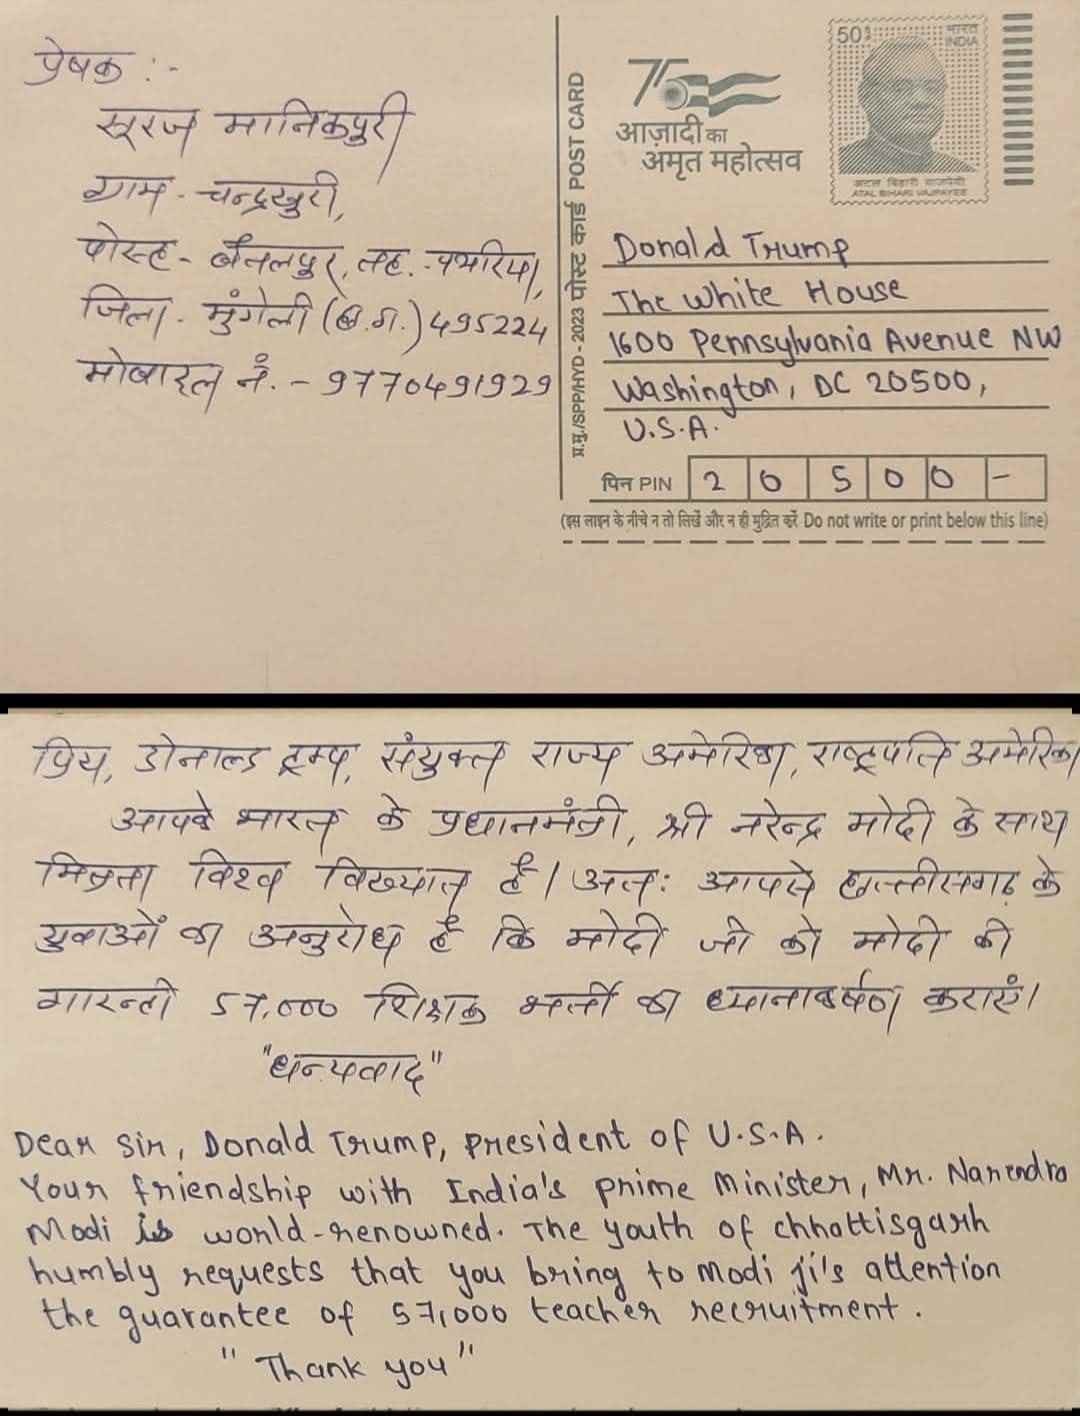 प्रेषक :-
सूरज मानिकपुरी
ग्राम - चन्द्रखुरी,
पोस्ट - बैतलपुर, तह. - पथरिया,
जिला - मुंगेली (छ.ग.) 495224
मोबाइल नं. - 9770491929
प्र.मु./SPP/HYD - 2023 पोस्ट कार्ड POST CARD
75
आज़ादी का
अमृत महोत्सव
50
भारत
INDIA
अटल बिहारी वाजपेयी
ATAL BIHARI VAJPAYEE
Donald Trump
The White House
1600 Pennsylvania Avenue NW
Washington, DC 20500,
U.S.A.
पिन PIN 2 0 5 0 0 -
(इस लाइन के नीचे न तो लिखें और न ही मुद्रित करें Do not write or print below this line)
प्रिय, डोनाल्ड ट्रम्प, संयुक्त राज्य अमेरिका, राष्ट्रपति अमेरिका
आपके भारत के प्रधानमंत्री, श्री नरेन्द्र मोदी के साथ
मित्रता विश्व विख्यात है। अतः आपसे छत्तीसगढ़ के
युवाओं का अनुरोध है कि मोदी जी को मोदी की
गारन्टी 57,000 शिक्षक भर्ती का ध्यानाकर्षण कराएं।
"धन्यवाद"
Dear Sir, Donald Trump, President of U.S.A.
Your friendship with India's prime Minister, Mr. Narendra
Modi is world-renowned. The youth of chhattisgarh
humbly requests that you bring to Modi ji's attention
the guarantee of 57,000 teacher recruitment.
"Thank you"